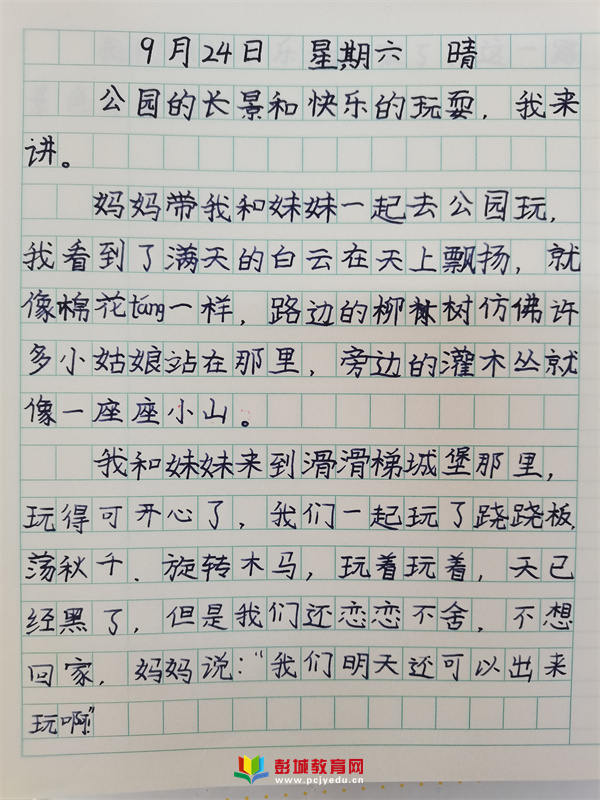 9月24日 星期六 晴
公园的长景和快乐的玩耍，我来
讲。
妈妈带我和妹妹一起去公园玩，
我看到了满天的白云在天上飘扬，就
像棉花táng一样，路边的柳树仿佛许
多小姑娘站在那里，旁边的灌木丛就
像一座座小山。
我和妹妹来到滑滑梯城堡那里，
玩得可开心了，我们一起玩了跷跷板，
荡秋千、旋转木马，玩着玩着，天已
经黑了，但是我们还恋恋不舍，不想
回家，妈妈说：“我们明天还可以出来
玩啊”
彭城教育网
www.pcjyedu.cn